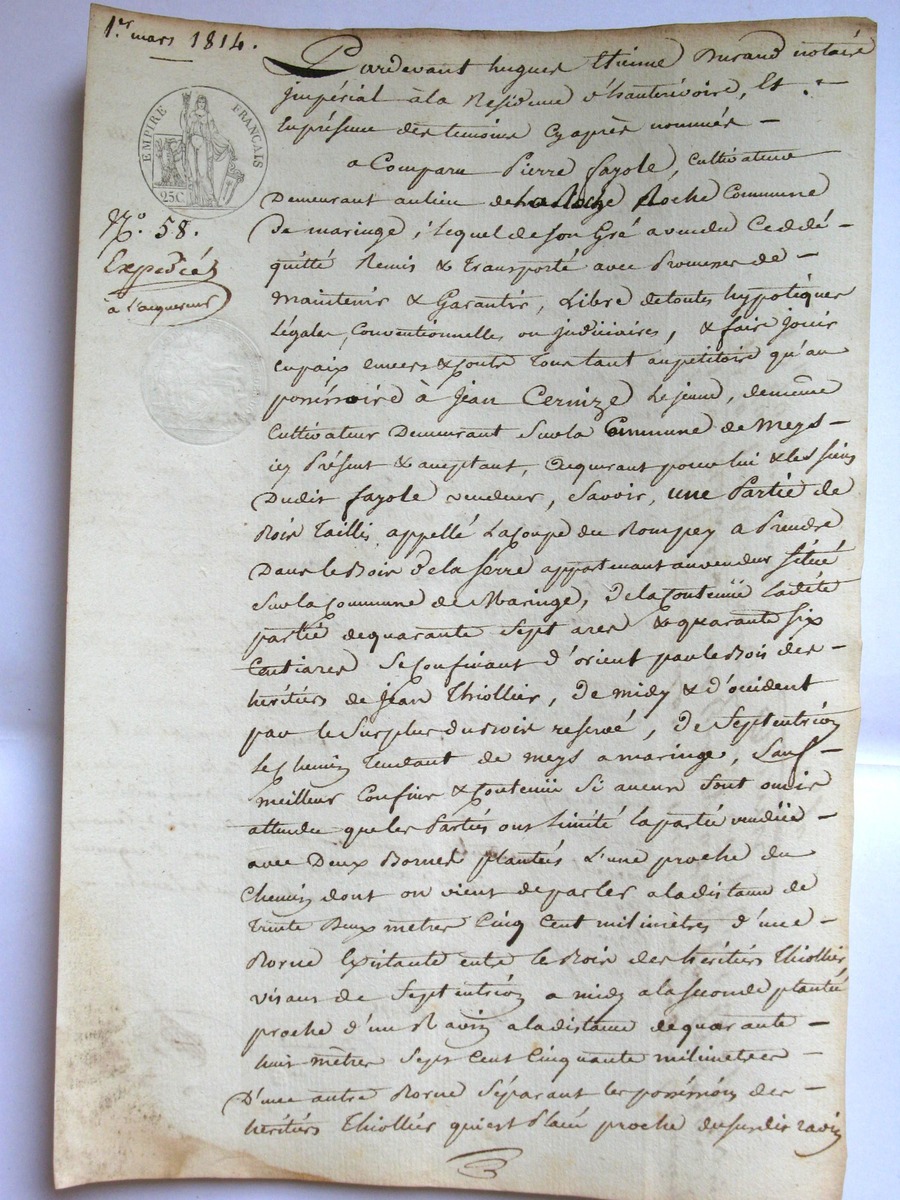 1.er mars 1814.
EMPIRE FRANÇAIS
25C
N.o 58.
Expedié
à l'acquereur
Pardevant hugues Etienne Durand notaire
impérial à la Residence d'hauterivoire, Et
En présence des temoins Cyaprès nommés —
a Comparu Pierre fayole, Cultivateur
Demeurant aulieu de Roche Commune
De maringe, lequel de son Gré avendu Ceddé -
quitté Remis & Transporté avec Promesses de -
maintenir & Garantir, Libre detoutes hypotèques
Légales, Conventionnelles ou judiciaires, & faire jouir
enpaix envers & contre Tous tant aupetitoire qu'au
possessoire à Jean Cernize Lejeune, demême
Cultivateur Demeurant Surla Commune de Meys -
icy Présent & aceptant, acquerant pour lui & les siens
Dudit fayole vendeur, Savoir, une Partie de
Bois Taillis appellé Lacoupe du Rompey a Prendre
Dans le Bois de la Serre appartenant auvendeur Situé
Surla Commune de Maringe, de la Contenüe Ladite
partie dequarante Sept ares & quarante Six
Centiares Se Confinant d'orient par le Bois des -
héritiers de Jean Thiollier, De midy & d'occident
par le Surplus du Bois reservé, De Septentrion
le Chemin Tendant de meys a maringe, Sauf -
meilleur Confins & Contenüe Si aucuns Sont omis
attendu que les Parties ont limité la partie vendüe -
avec Deux Bornes plantées L'une proche du
Chemin dont on vient deparler aladistance de
Trente Deux mètres Cinq Cent milimètres d'une -
Borne Existante entre le Bois des héritiers Thiollier
visant de Septentrion a midy ala seconde plantée
proche d'un Ravin aladistance dequarante -
huit mètres Sept Cent Cinquante milimetres -
D'une autre Borne Séparant les possessions des -
héritiers Thiollier qui est proche dususdit ravin